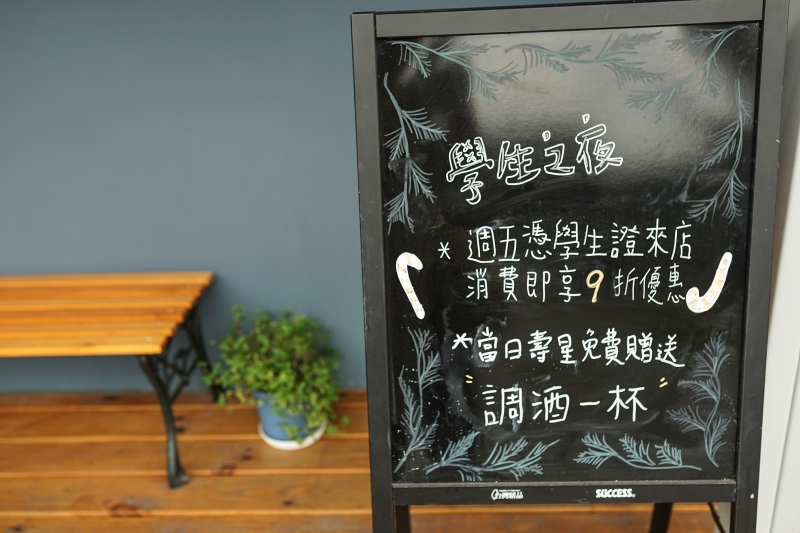 學生之夜
* 週五憑學生證來店
消費即享9折優惠
* 當日壽星免費贈送
"調酒一杯"
SUCCESS